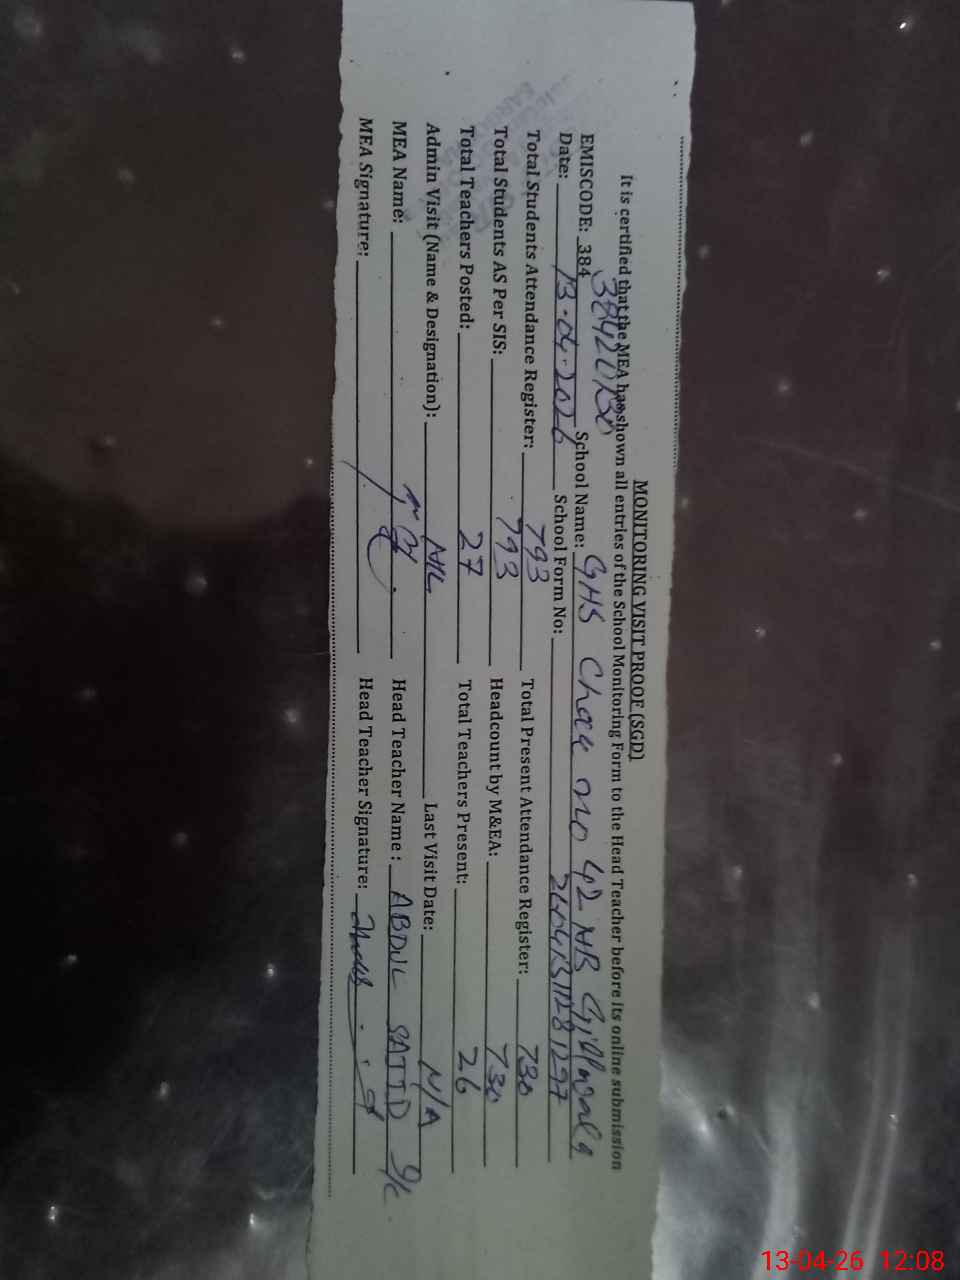 MONITORING VISIT PROOF (SGD)
It is certified that the MEA has shown all entries of the School Monitoring Form to the Head Teacher before its online submission
EMISCODE: 384 38420130 School Name: GHS Chak no 42 NB Gillwala
Date: 13-04-2026 School Form No:
Total Students Attendance Register: 793 Total Present Attendance Register: 730
Total Students AS Per SIS: 793 Headcount by M&EA: 730
Total Teachers Posted: 27 Total Teachers Present: 26
Admin Visit (Name & Designation): NIL Last Visit Date: N/A
MEA Name: Head Teacher Name: ABDUL SAJID I/C
MEA Signature: Head Teacher Signature:
13-04-26 12:08